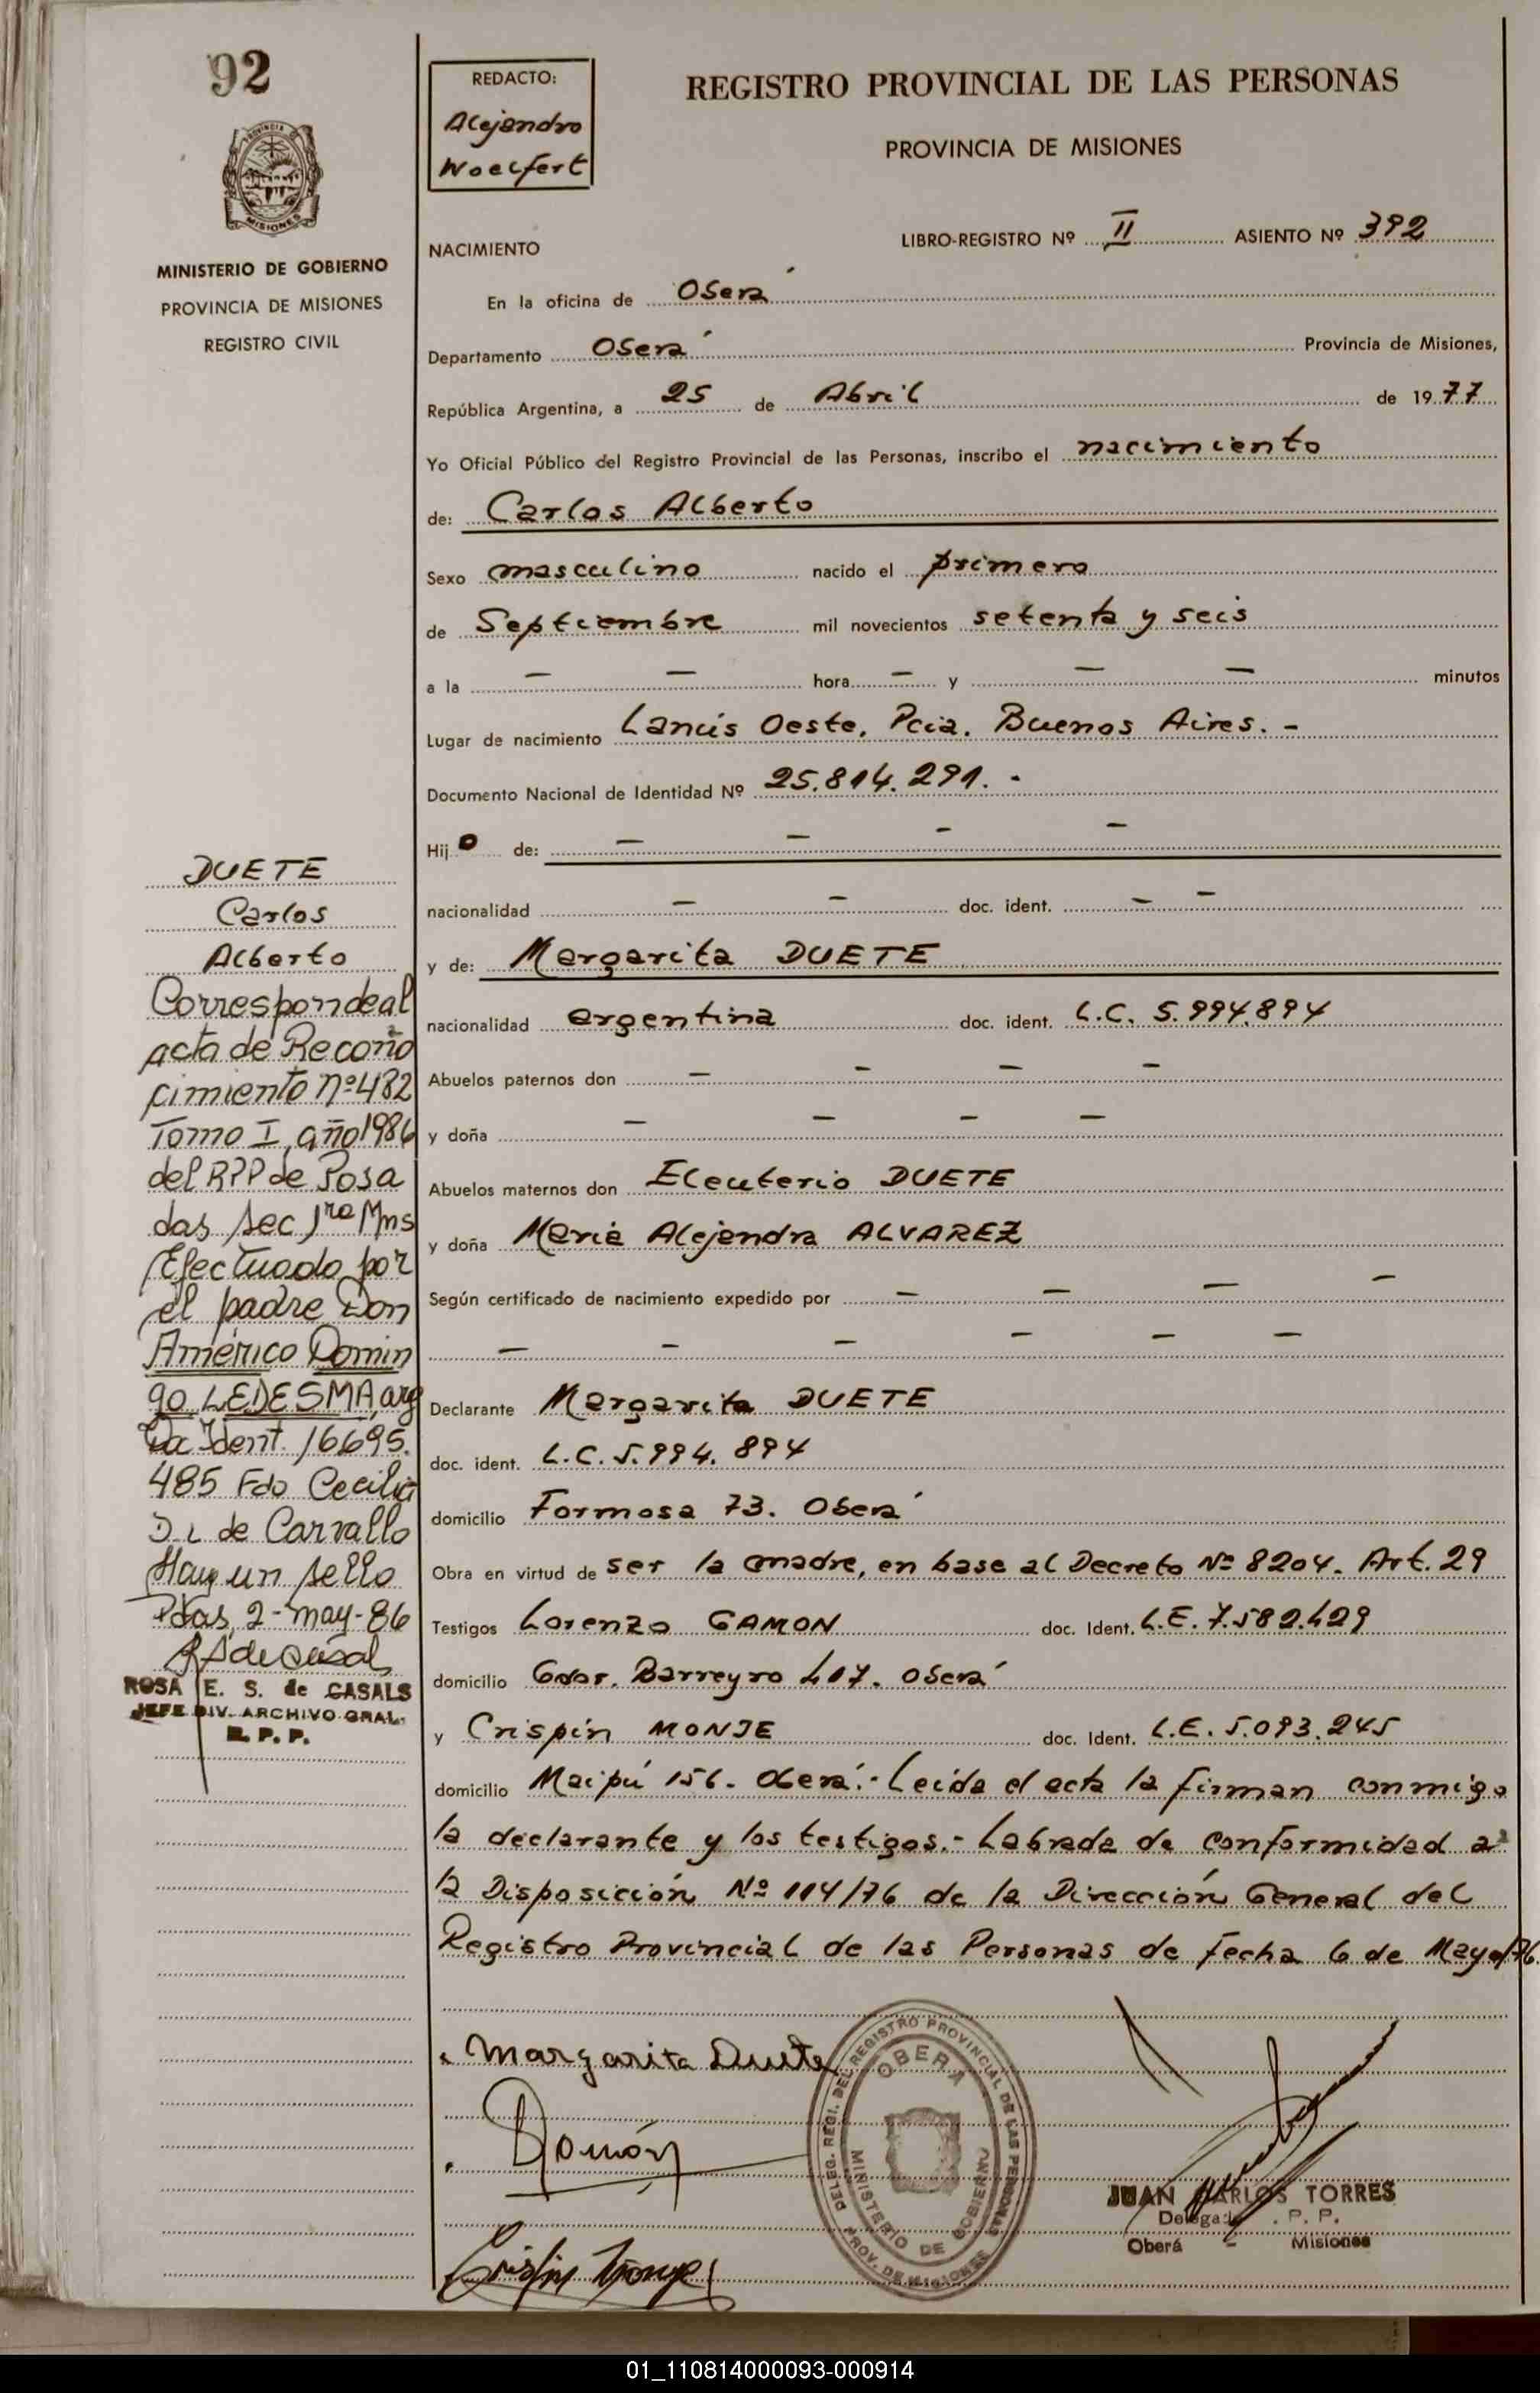 92
PROVINCIA DE
MISIONES
MINISTERIO DE GOBIERNO
PROVINCIA DE MISIONES
REGISTRO CIVIL
REDACTO:
Alejandro
Woelfert
REGISTRO PROVINCIAL DE LAS PERSONAS
PROVINCIA DE MISIONES
LIBRO-REGISTRO Nº II ASIENTO Nº 392
NACIMIENTO
En la oficina de Oberá
Departamento Oberá Provincia de Misiones,
República Argentina, a 25 de Abril de 1977
Yo Oficial Público del Registro Provincial de las Personas, inscribo el nacimiento
de: Carlos Alberto
Sexo masculino nacido el primero
de Septiembre mil novecientos setenta y seis
a la — — hora — y — — minutos
Lugar de nacimiento Lanús Oeste. Pcia. Buenos Aires. -
Documento Nacional de Identidad Nº 25.814.291. -
Hijo de: — — — —
nacionalidad — — doc. ident. — —
y de: Margarita DUETE
nacionalidad argentina doc. ident. L.C. 5.994.894
Abuelos paternos don — — — —
y doña — — — —
Abuelos maternos don Eleuterio DUETE
y doña María Alejandra ALVAREZ
Según certificado de nacimiento expedido por — — — —
— — — — — —
Declarante Margarita DUETE
doc. ident. L.C. 5.994.894
domicilio Formosa 73. Oberá
Obra en virtud de ser la madre, en base al Decreto Nº 8204. Art. 29
Testigos Lorenzo GAMON doc. Ident. L.E. 7.582.429
domicilio Gdor. Barreyro 407. Oberá
y Crispín MONJE doc. Ident. L.E. 5.093.245
domicilio Maipú 156. Oberá.- Leída el acta la firman conmigo
la declarante y los testigos.- Labrada de conformidad a
la Disposición Nº 114/76 de la Dirección General del
Registro Provincial de las Personas de fecha 6 de Mayo/76.
DUETE
Carlos
Alberto
Corresponde al
acta de Recono
cimiento nº 482
Tomo I, año 1986
del RPP de Posa
das sec 1ra Mns
Efectuado por
el padre Don
Américo Domin
go LEDESMA, arg
Doc Ident. 16695.
485 Fdo Cecilia
D.L de Carvallo
Hay un sello
Pdas, 2-may-86
ROSA E. S. de CASALS
JEFE DIV. ARCHIVO GRAL.
R. P. P.
Margarita Duete
DELEG. REGI. DEL REGISTRO PROVINCIAL DE LAS PERSONAS
OBERA
MINISTERIO DE GOBIERNO
PROV. DE MISIONES
JUAN CARLOS TORRES
P. P.
Oberá - Misiones
01_110814000093-000914